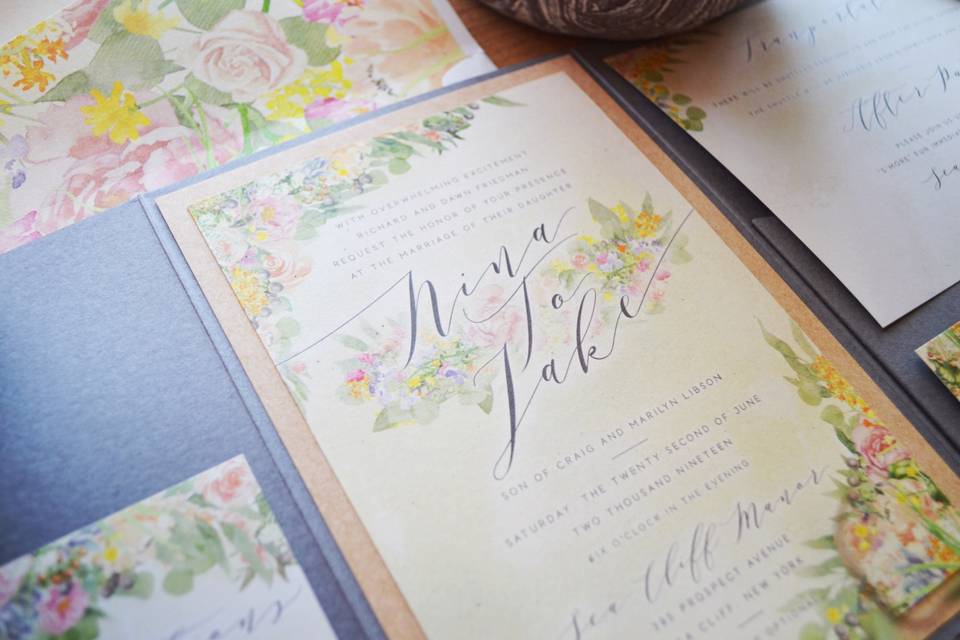 WITH OVERWHELMING EXCITEMENT
RICHARD AND DAWN FRIEDMAN
REQUEST THE HONOR OF YOUR PRESENCE
AT THE MARRIAGE OF THEIR DAUGHTER
Nina
To
Jake
SON OF CRAIG AND MARILYN LIBSON
SATURDAY THE TWENTY SECOND OF JUNE
TWO THOUSAND NINETEEN
SIX O'CLOCK IN THE EVENING
Sea Cliff Manor
395 PROSPECT AVENUE
CLIFF, NEW YORK
THERE WILL BE
THE SHUTTLE
After
PLEASE JOIN